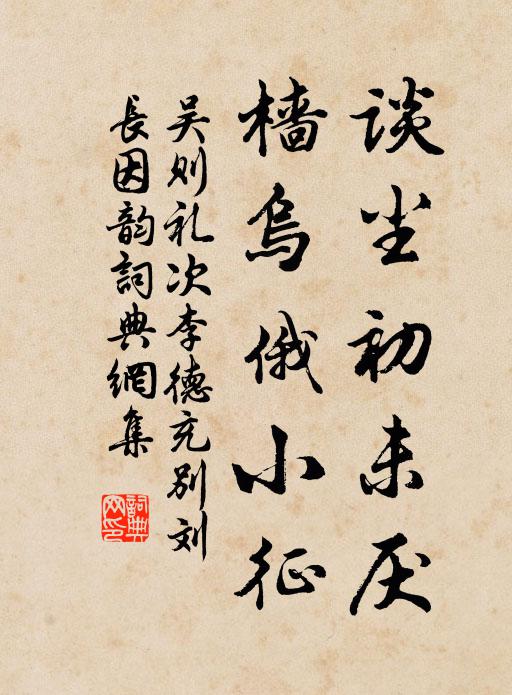 谈尘初未厌
樯乌俄小征
吴则礼次李德充别刘
長因韵詞典網集
詞典网印